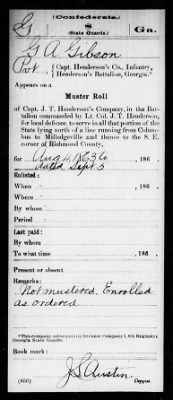 (Confederate.)
G (State Guards.) Ga.
G A Gibson
Pvt., Capt. Henderson's Co., Infantry,
Henderson's Battalion, Georgia.*
Appears on a
Muster Roll
of Capt. J. T. Henderson's Company, in the Bat-
talion commanded by Lt. Col. J. T. Henderson,
for local defence, to serve in all that portion of the
State lying north of a line running from Colum-
bus to Milledgeville and thence to the S. E.
corner of Richmond County,
for Aug 4, 1863, 186 .
dated Sept 5
Enlisted:
When , 186 .
Where
By whom
Period
Last paid:
By whom
To what time , 186 .
Present or absent
Remarks:
Not mustered. Enrolled
as ordered
*This company subsequently became Company
Georgia State Guards.
Book mark:
J S Austin
(650) Copyist.